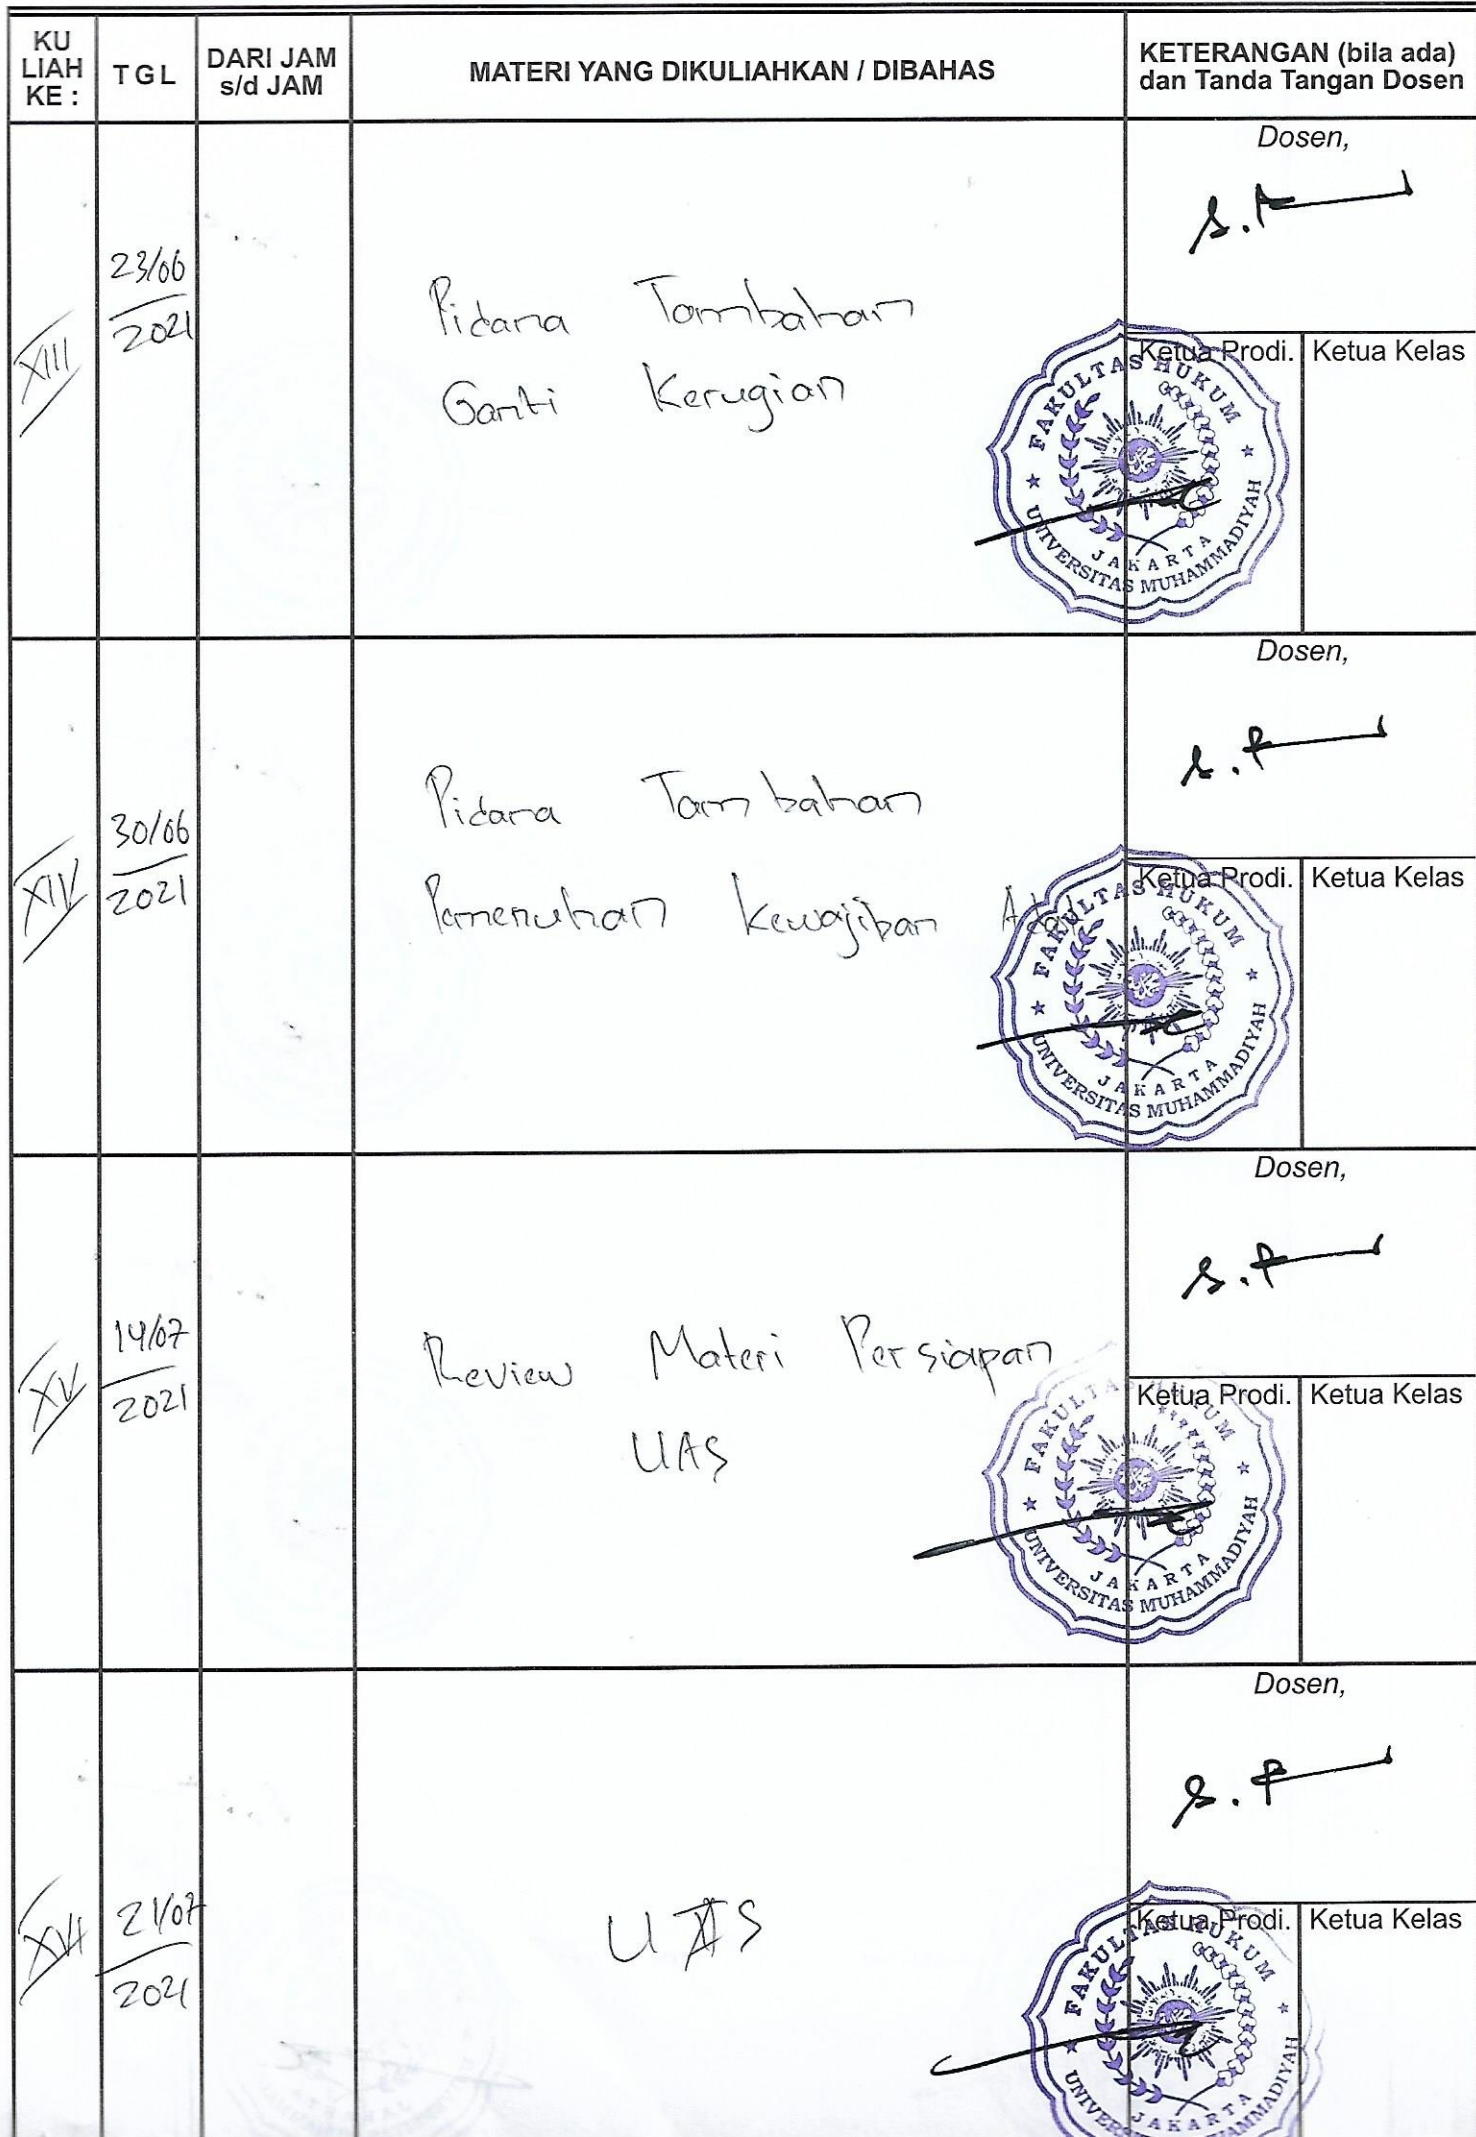 KU
LIAH
KE :
TGL
DARI JAM
s/d JAM
MATERI YANG DIKULIAHKAN / DIBAHAS
KETERANGAN (bila ada)
dan Tanda Tangan Dosen
XIII
23/06
2021
Pidana Tambahan
Ganti Kerugian
Dosen,
Ketua Prodi.
Ketua Kelas
FAKULTAS HUKUM
JAKARTA
UNIVERSITAS MUHAMMADIYAH
XIV
30/06
2021
Pidana Tambahan
Pemenuhan Kewajiban Adat
Dosen,
Ketua Prodi.
Ketua Kelas
FAKULTAS HUKUM
JAKARTA
UNIVERSITAS MUHAMMADIYAH
XV
14/07
2021
Review Materi Persiapan
UAS
Dosen,
Ketua Prodi.
Ketua Kelas
FAKULTAS HUKUM
JAKARTA
UNIVERSITAS MUHAMMADIYAH
XVI
21/07
2021
UAS
Dosen,
Ketua Prodi.
Ketua Kelas
FAKULTAS HUKUM
JAKARTA
UNIVERSITAS MUHAMMADIYAH